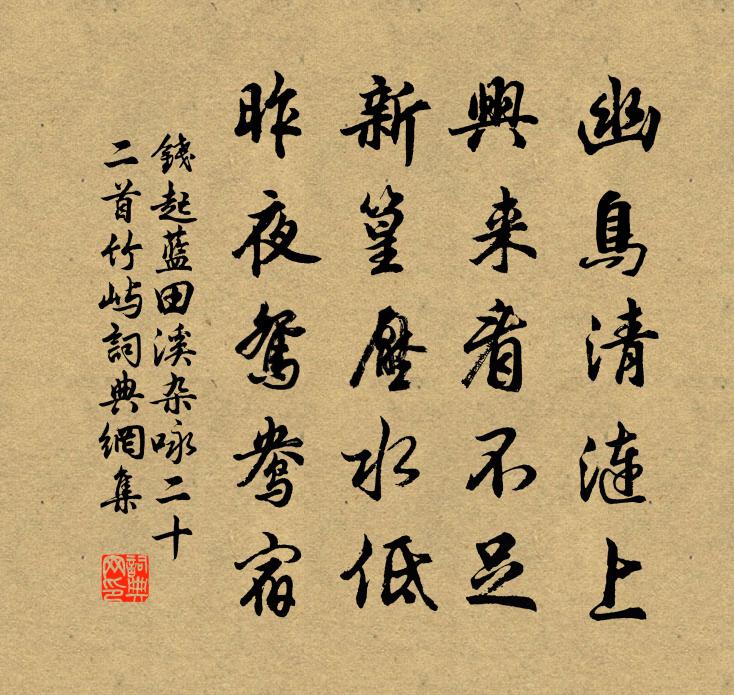 幽鳥清漣上
興来看不足
新篁壓水低
昨夜鴛鴦宿
錢起藍田溪杂咏二十
二首竹屿詞典網集
詞典网印